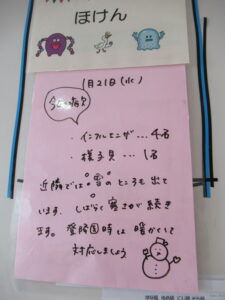 ほけん
1月21日(水)
今日の病欠
・インフルエンザ...4名
・様子見...1名
近隣では°雪°のところも出て
います。しばらく寒さが続き
ます。登降園時は暖かくして
対応しましょう